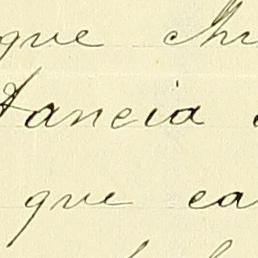 que
tancia
que ca